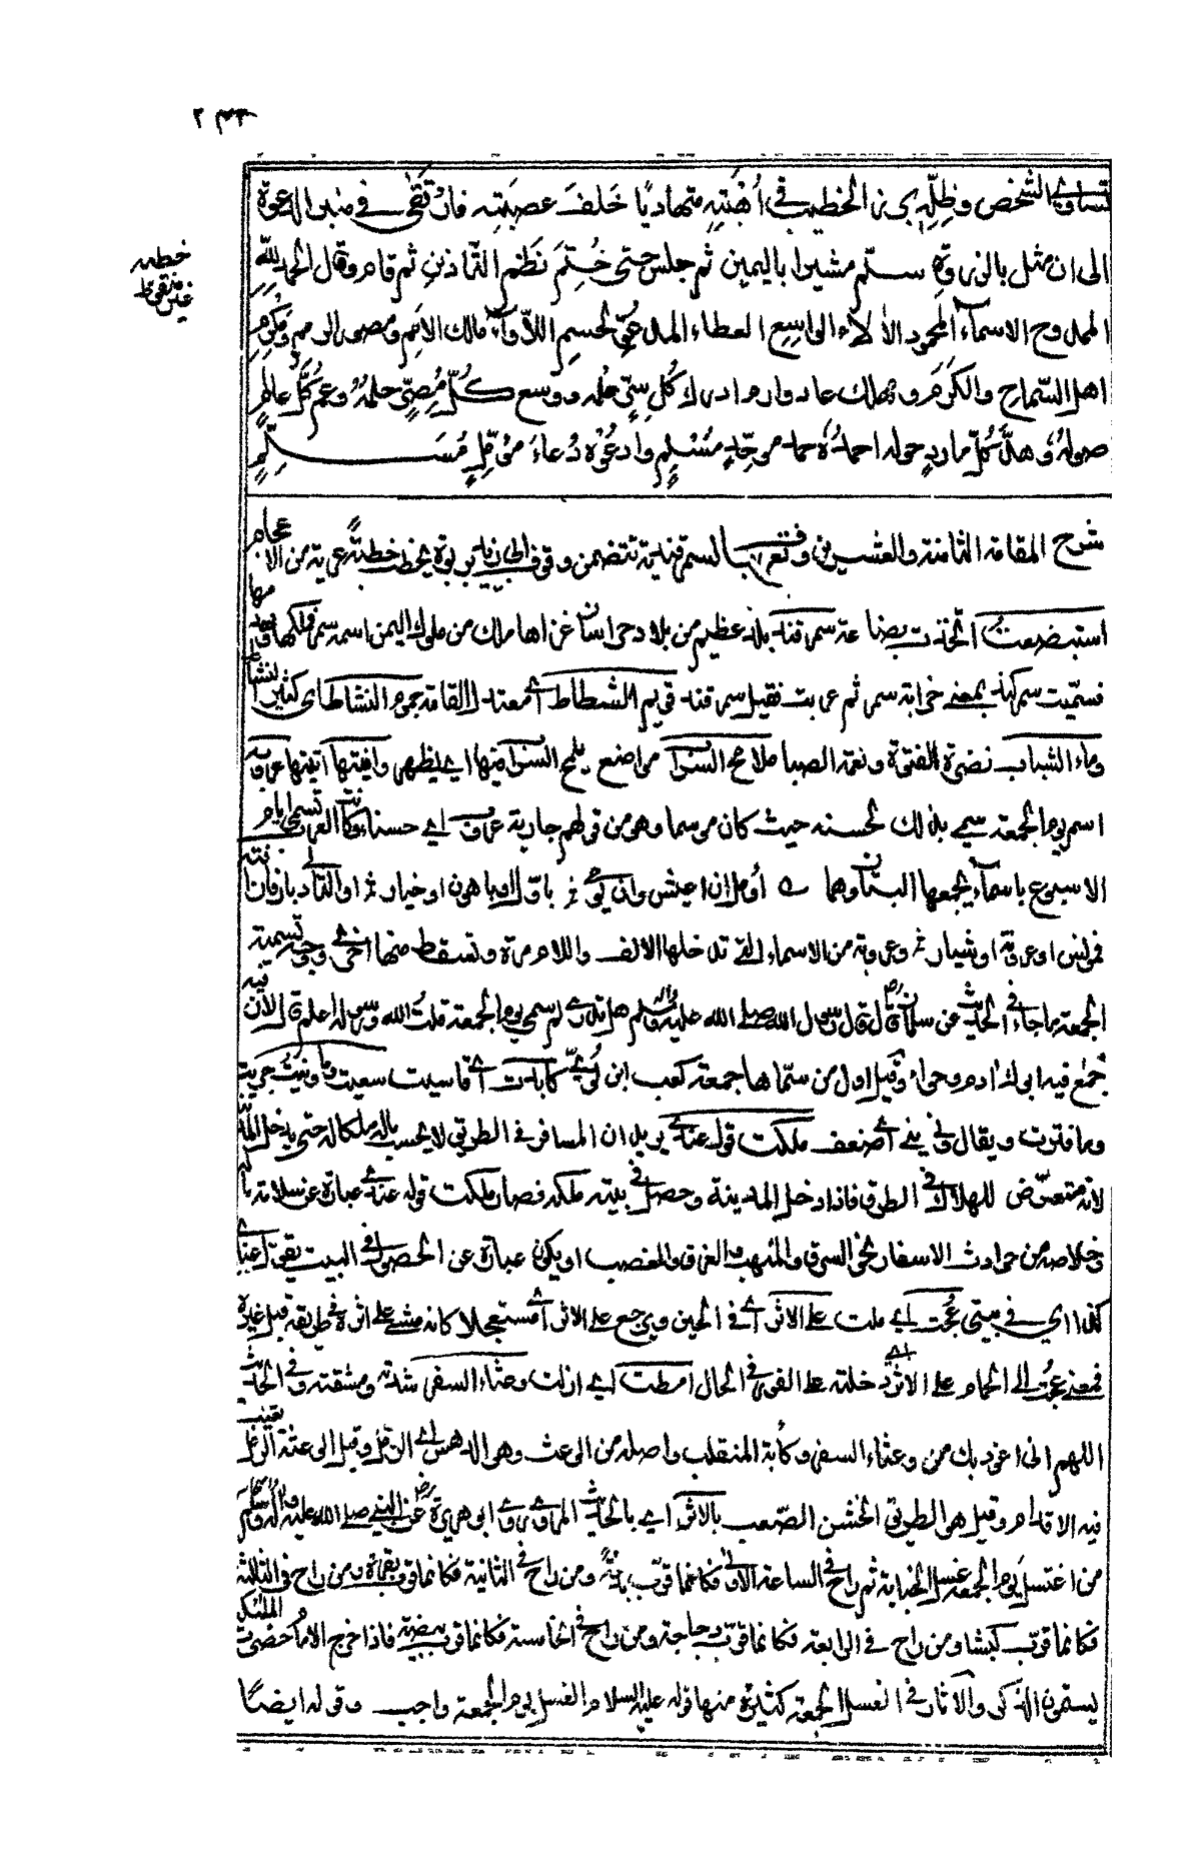 ٢٤٣
خطبه
غير منقوط
تساوي الشخص وظله برز الخطيب في أهبته متهاديا خلف عصبته فارتقى في منبر الدعوة
الى ان مثل بالذروة سلّم مشيرا باليمين ثم جلس حتى ختم نظم التأذين ثم قام وقال الحمد لله
الممدوح الاسمآء المحمود الآلاء الواسع العطاء المدعو لحسم اللأوآء مالك الامم ومصور الرمم ومكرم
اهل السماح والكرم ومهلك عاد وارم ادرك كل سر علمه ووسع كل مصر حلمه وعم كل عالم
طوله وهد كل مارد حوله احمده حمد موحد مسلم وادعوه دعاء مؤمل مسلم
شرح المقامة الثامنة والعشرين وتعرف بالسمرقندية تتضمن وقوف ابي زيد بربوة يخطب خطبة عرية من الاعجام
استبضعت اتخذت بضاعة سمرقند بلد عظيم من بلاد خراسان غزاها ملك من ملوك اليمن اسمه سمر فملكها وهدمها
فسميت سمركند بمعنى خرابة سمر ثم عربت فقيل سمرقند قويم الشطاط اى معتدل القامة جموم النشاط اى كثير النشاط
وماء الشباب نضرة الفتوة ونعمة الصبا ملامح السراب مواضع يلمح السراب فيها اي يظهر وافيتها اتيتها عروبة
اسم يوم الجمعة سمى بذلك لحسنه حيث كان موسما وهو من قولهم جارية عروب اي حسناء وكانت العرب تسمى ايام
الاسبوع باسمآء يجمعها البيتان وهما اؤمل ان اعيش وان يومي باول او باهون او جبار او التالي دبار فان افته
فمونس او عروبة او شيار وعروبة من الاسماء التي تدخلها الالف واللام مرة وتسقط منها اخرى وجه تسمية
الجمعة ما جاء في الحديث عن سلمان قال قال رسول الله صلى الله عليه وآله وسلم هل تدري لم سمي يوم الجمعة قلت الله ورسوله اعلم قال لان فيه
جمع فيه ابوك ادم وحواء وقيل اول من سماها جمعة كعب ابن لؤي كابدت اى قاسيت سعيت وما ونيت جريت
وما فترت ويقال ونى يني اى ضعف ملكت قوله عندي يريد ان المسافر في الطريق لا يحسب ماله ملكا له حتى يدخل البلد
لانه متعرض للهلاك في الطرق فاذا دخل المدينة وحصل في بيته ملكه فصار ملكت قوله عندي عبارة عن سلامة ماله
وخلاصه من حوادث الاسفار نحو السرق والنهب والغرق والغصب او يكون عبارة عن الحصول في البيت يقول عندي
كذا اي في بيتى عجت اى ملت على الاثر اى في الحين ويرجع على الاثر اى مستعجلا كانه مشى على اثره في طريقه قبل غيره
فمعنى عجت الى الحمام على الاثر اى دخلته على الفور في الحال امطت اي ازلت وعثاء السفر شدته ومشقته وفي الحديث
اللهم انى اعوذ بك من وعثاء السفر وكأبة المنقلب واصله من الوعث وهو الدهس اى الرمل وقيل الوعث الرمل تغيب
فيه الاقدام وقيل هو الطريق الخشن الصعب بالاثر اي بالحديث المروي روى ابو هريرة عن النبي صلى الله عليه وآله وسلم
من اغتسل يوم الجمعة غسل الجنابة ثم راح في الساعة الاولى فكانما قرب بدنة ومن راح في الثانية فكانما قرب بقرة ومن راح في الثالثة
فكانما قرب كبشا ومن راح في الرابعة فكانما قرب دجاجة ومن راح في الخامسة فكانما قرب بيضة فاذا خرج الامام حضرت الملئكة
يستمعون الذكر والآثار في الغسل الجمعة كثيرة منها قوله عليه السلام الغسل يوم الجمعة واجب وقوله ايضا